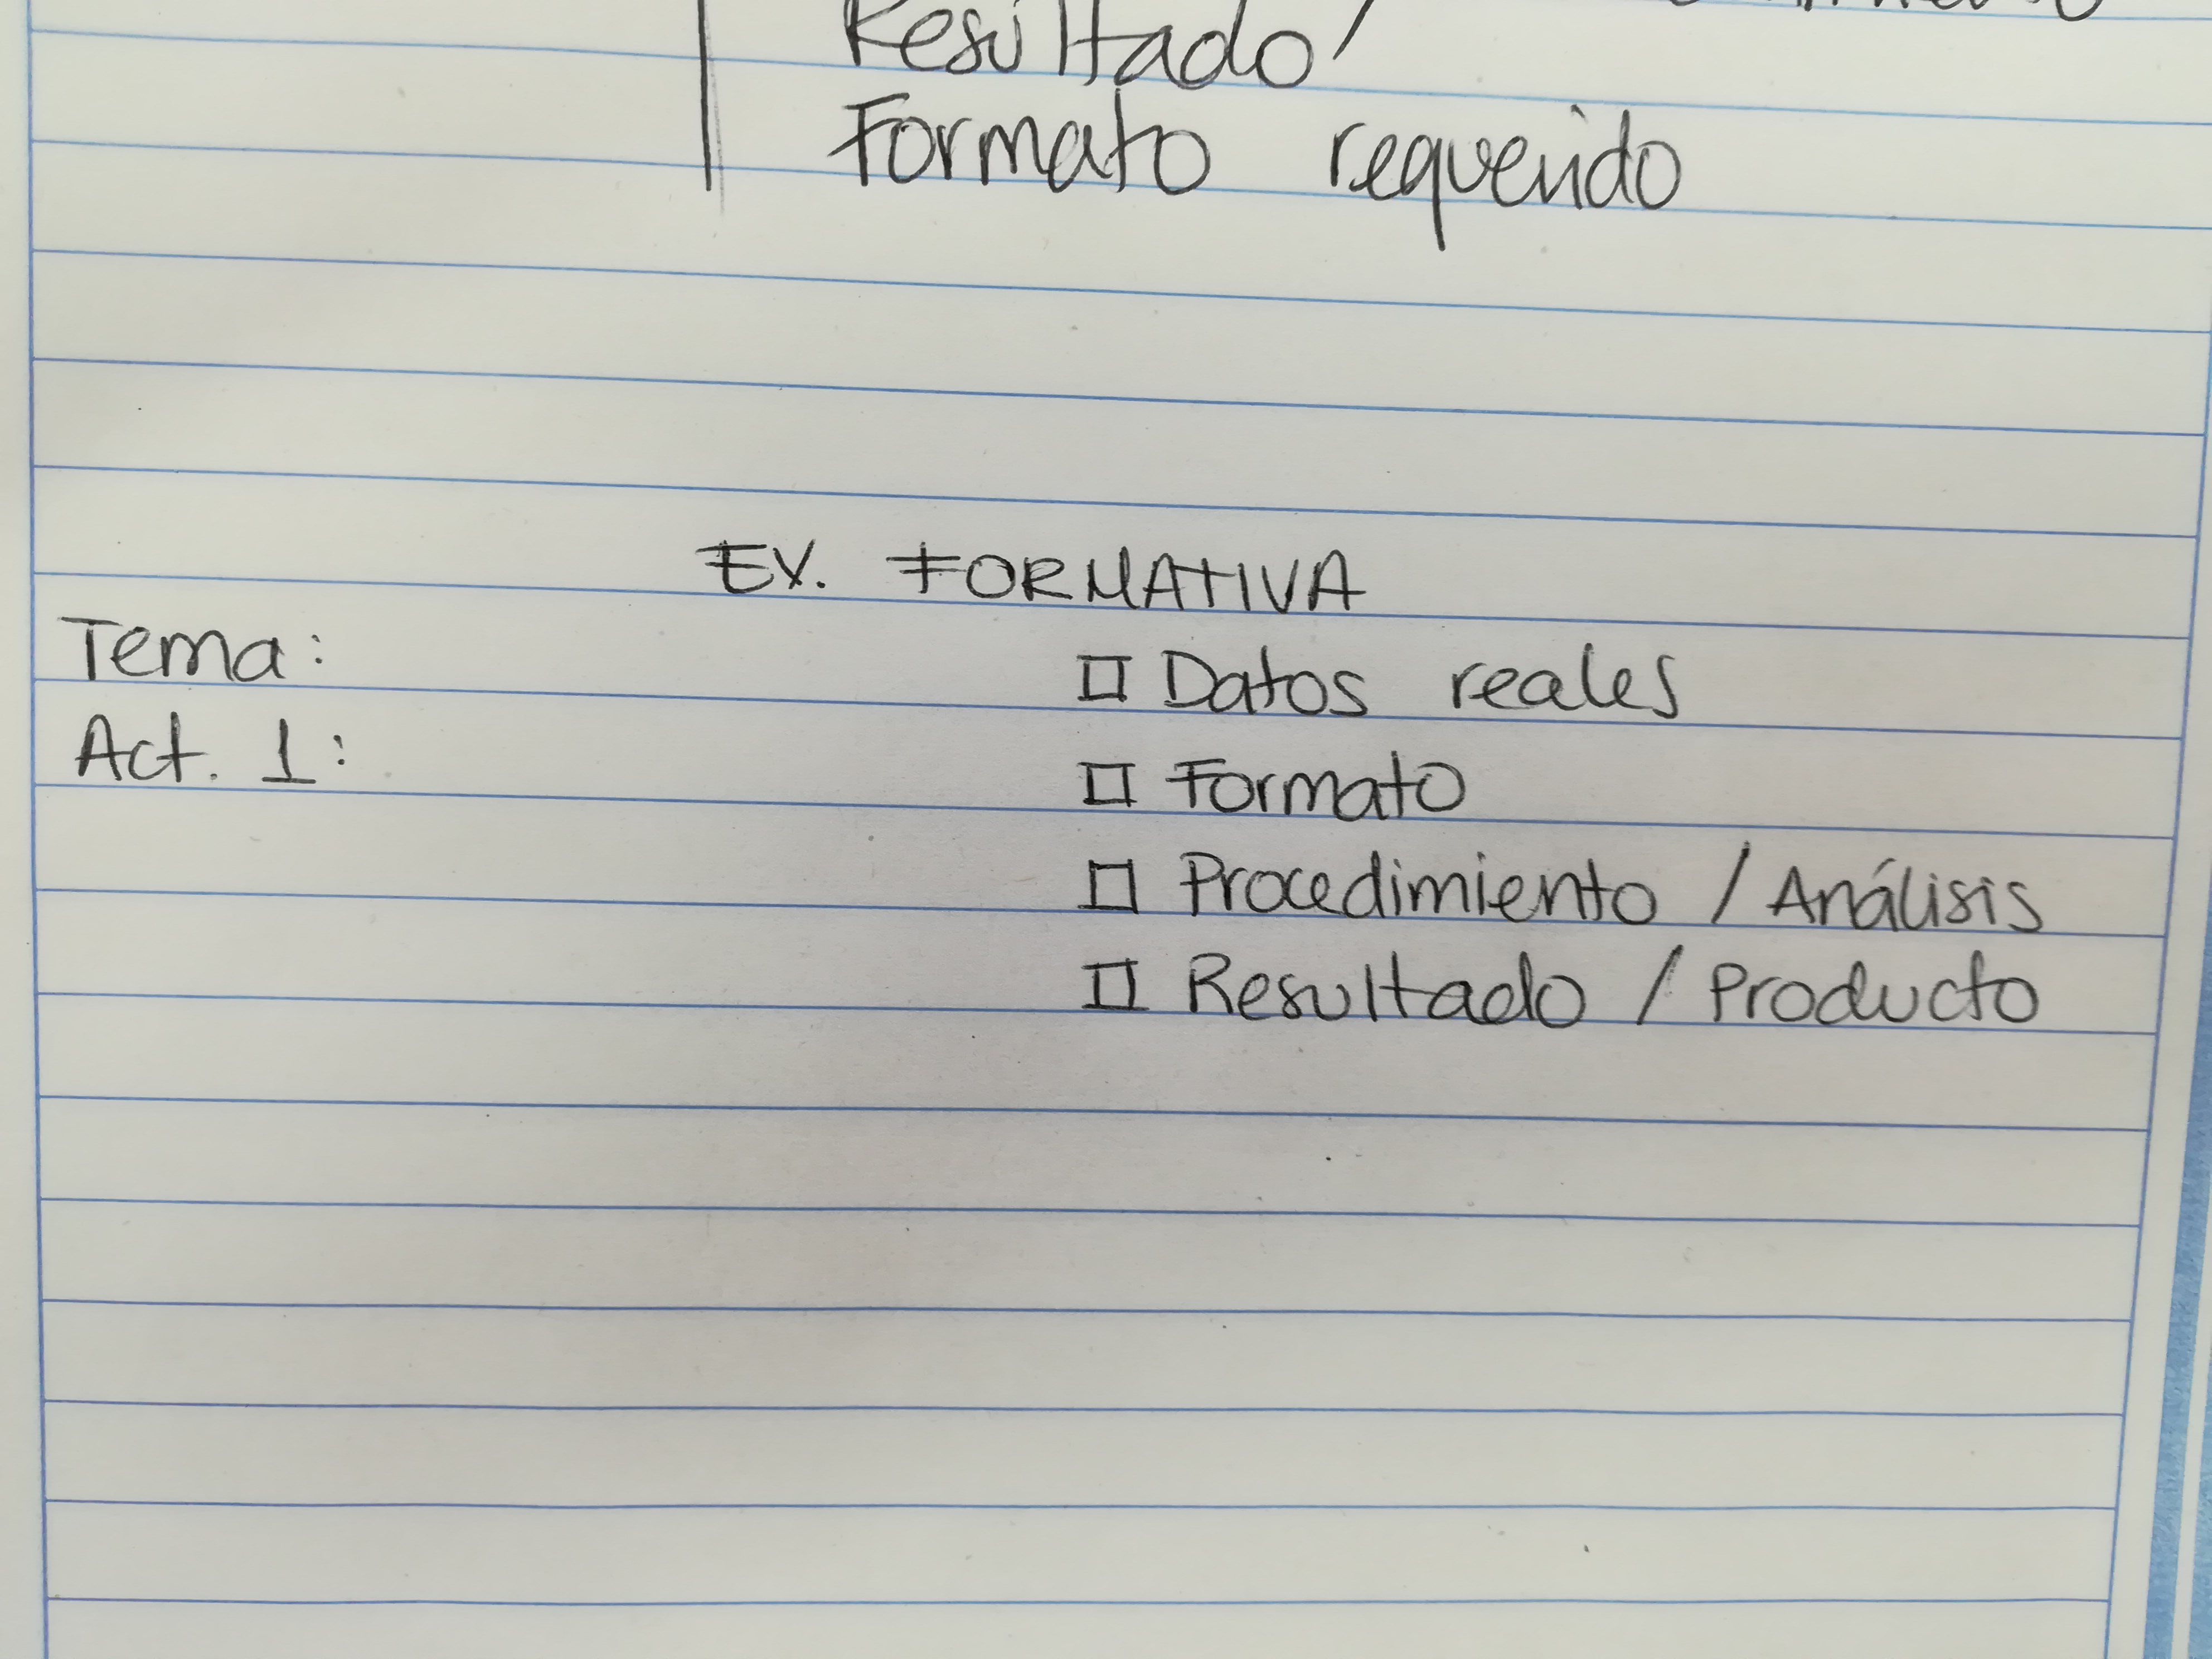 Resultado/
Formato requerido
EV. FORMATIVA
Tema:
□ Datos reales
Act. 1:
□ Formato
□ Procedimiento / Análisis
□ Resultado / Producto